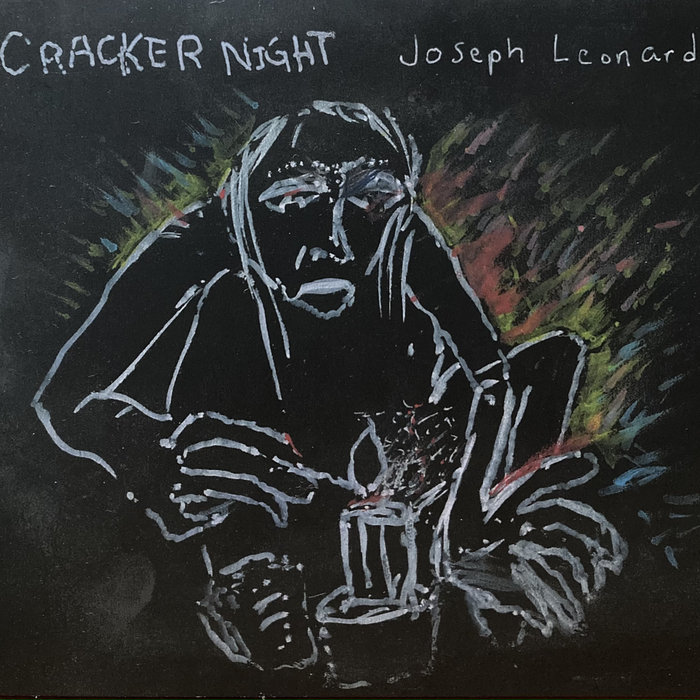 CRACKER NIGHT Joseph Leonard